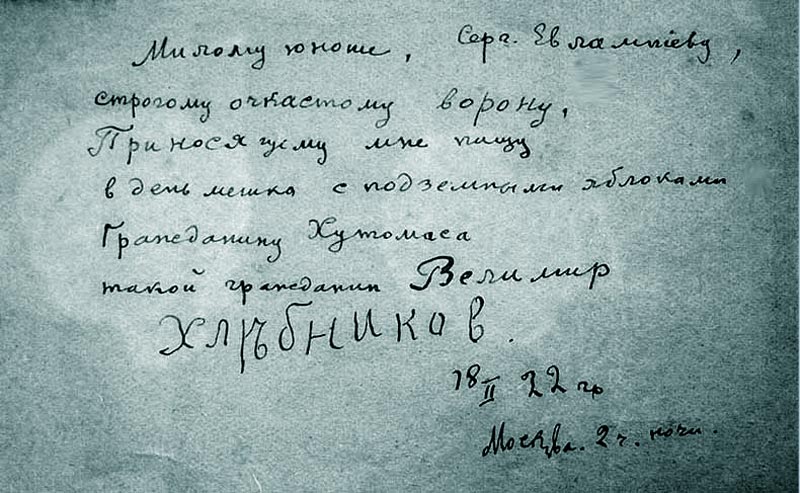 Милому юноше, Серг. Евлампіеву,
строгому очкастому ворону,
Приносящему мне пищу
в день мешка с подземными яблоками
Гражданину Хутомаса
такой гражданин Велимир
Хлѣбников.
18 II 22 г
Москва. 2 ч. ночи.